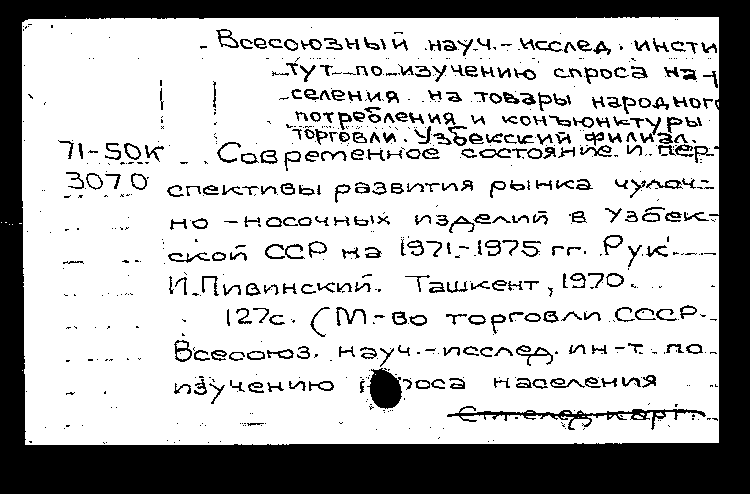 Всесоюзный науч.-исслед. инсти
тут по изучению спроса на-
селения на товары народного
потребления и конъюнктуры
торговли. Узбекский филиал.
71-50К Современное состояние и пер-
3070 спективы развития рынка чулоч-
но-носочных изделий в Узбек-
ской ССР на 1971-1975 гг. Рук.
И. Пивинский. Ташкент, 1970.
127с. (М-во торговли СССР.
Всесоюз. науч.-исслед. ин-т по
изучению спроса населения
См. след. карт.